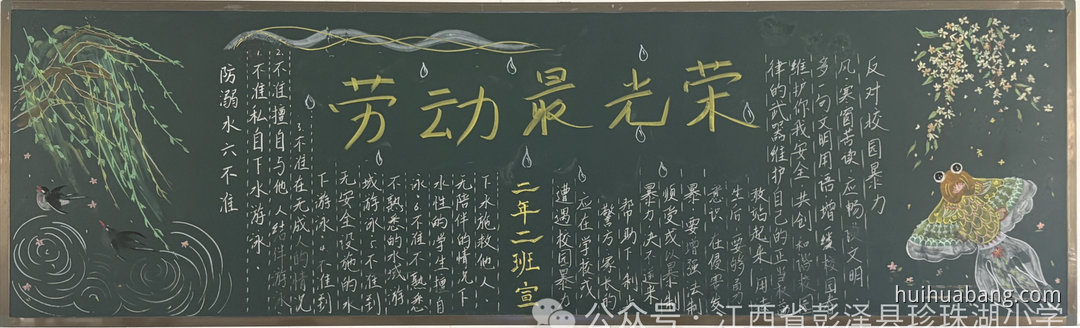 劳动最光荣
防溺水六不准
1.不准私自下水游泳.
2.不准擅自与他人结伴游泳
3.不准在无成人的情况
下游泳。不准到
无安全设施的水
域游泳5不准到
不熟悉的水域游
泳6不准不熟悉
水性的学生擅自
无陪伴的情况下
下水施救他人.
二年二班宣
反对校园暴力
风寒窗苦读,应畅文明
多一句文明用语增校园
维护你我安全 共创和谐校园
律的武器维护自己的正当
救治起来 用法
生后 要勇敢
意识 在侵害发
果,要增强法制
暴力
帮助下利
警方家长的
应在学校或
遭遇校园暴力
huihuabang.com
公众号·江西省彭泽县珍珠湖小学